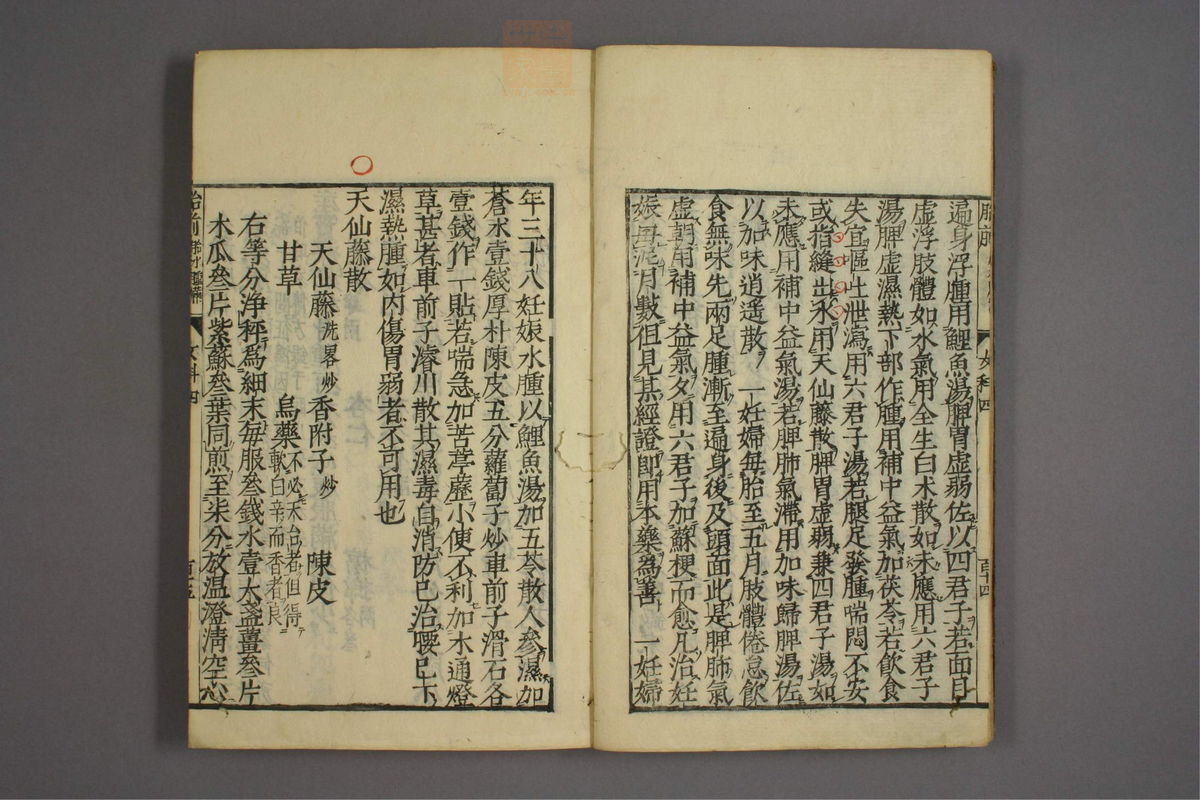 遍身浮腫用鯉魚湯脾胃虛弱佐以四君子若面目
虛浮肢體如水氣用全生白术散如未應用六君子
湯脾虛濕熱下部作腫用補中益氣加茯苓若飲食
失宜嘔吐泄瀉用六君子湯若腿足發腫喘悶不安
或指縫出水用天仙藤散脾胃虛弱兼四君子湯如
未應用補中益氣湯若脾肺氣滯用加味歸脾湯佐
以加味逍遥散 一妊婦每胎至五月肢體倦怠飲
食無味先兩足腫漸至遍身後及頭面此是脾肺氣
虛朝用補中益氣夕用六君子加蘇梗而愈凡治妊
娠毋泥月數但見某經證即用本藥為善 一妊婦
女科四
年三十八妊娠水腫以鯉魚湯加五苓散人參濕加
蒼术壹錢厚朴陳皮五分蘿蔔子炒車前子滑石各
壹錢作一貼若喘急加苦葶藶小便不利加木通燈
草甚者車前子濬川散其濕毒自消防已治腰已下
濕熱腫如内傷胃弱者不可用也
天仙藤散
天仙藤洗畧炒 香附子炒 陳皮
甘草 烏藥不必天台者但得軟白辛而香者良
右等分浄秤爲細末每服叁錢水壹大盞薑叁片
木瓜叁片紫蘇叁葉同煎至柒分放温澄清空心
胎前
女科四